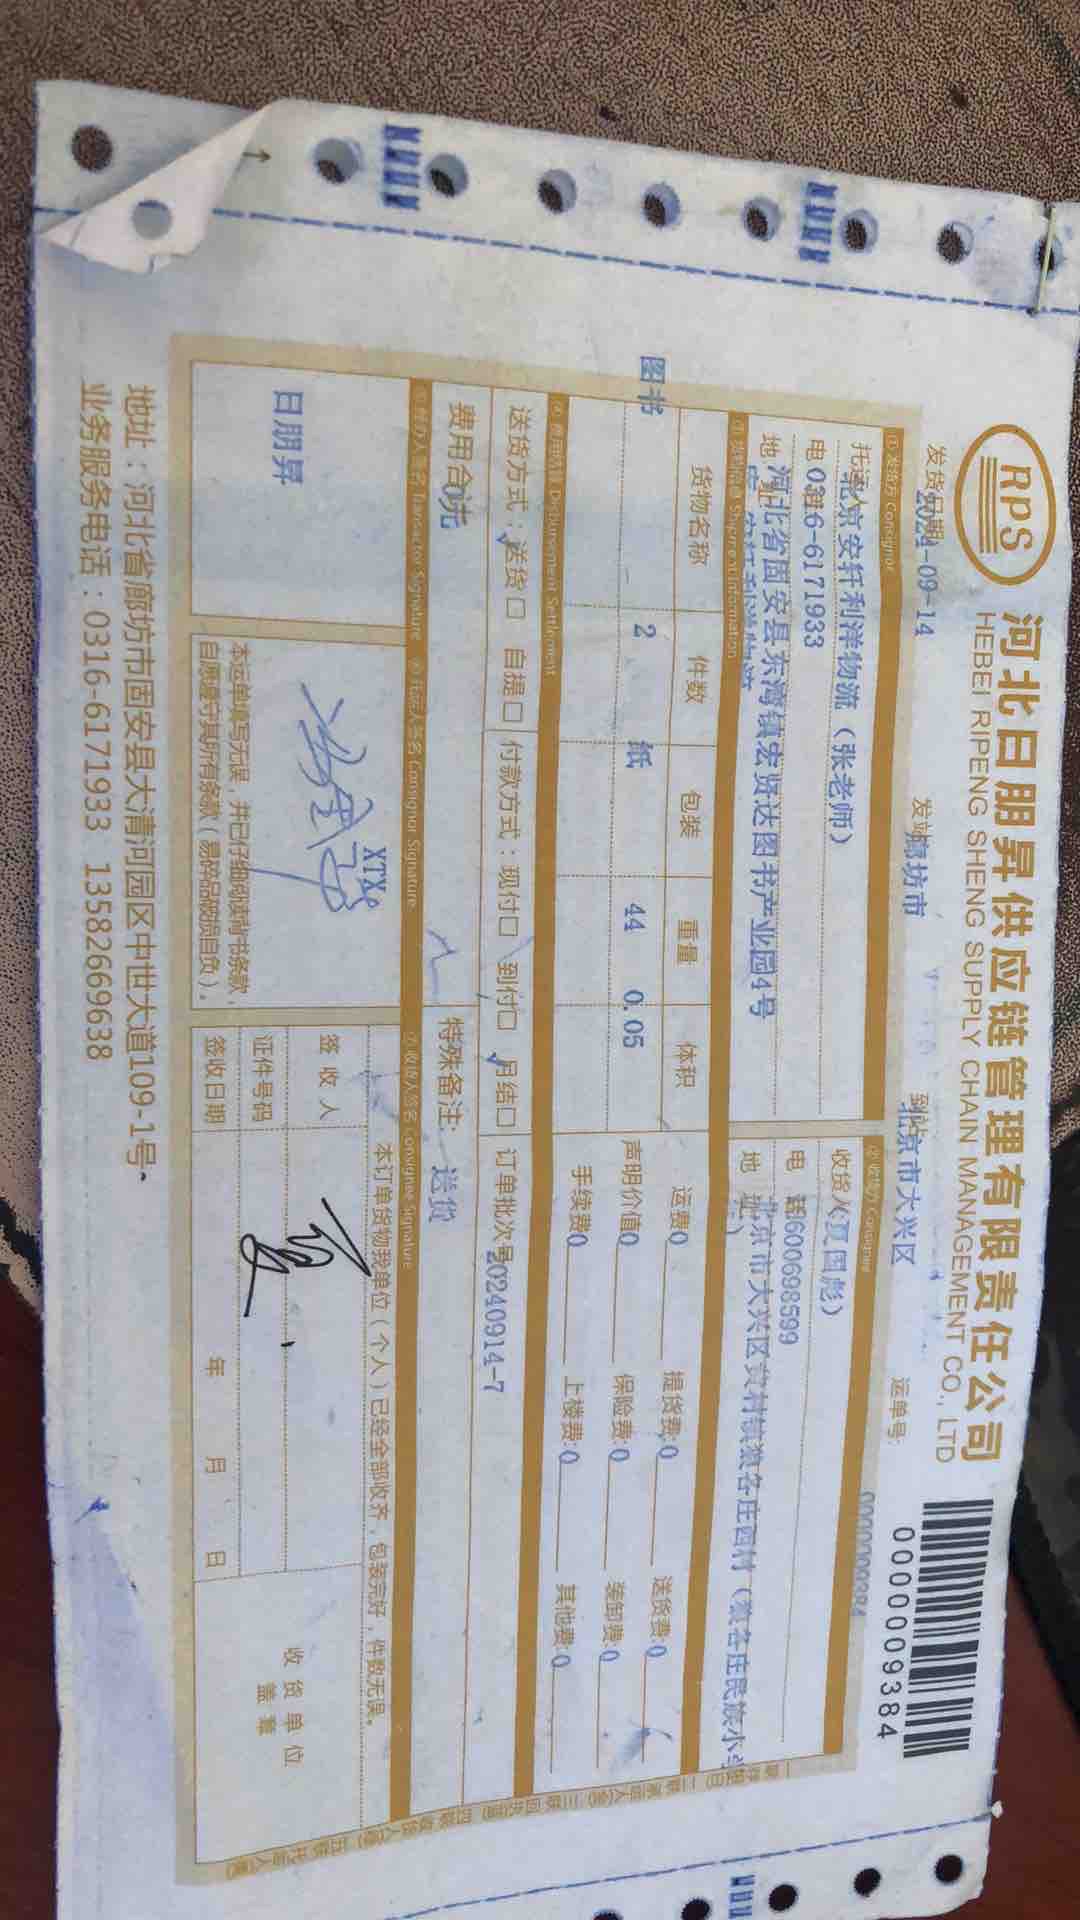 RPS
河北日朋昇供应链管理有限责任公司
HEBEI RIPENG SHENG SUPPLY CHAIN MANAGEMENT CO., LTD
0000009384
发货日期 2024-09-14 发站 廊坊市 到站 北京市大兴区 运单号: 0000009384
①发货方 Consignor
②收货方 Consignee
托运 北京安轩利洋物流（张老师）
收货人（夏国彪）
电 0316-6171933
电 话
地址 河北省固安县东湾镇宏贤达图书产业园4号
地址 北京市大兴区
③货物信息 Shipment Information
货物名称 件数 包装 重量 体积
图书 2 纸 44 0.05
运费0 提货费:0 送货费:0
声明价值0 保险费:0 装卸费:0
手续费0 上楼费:0 其他费:0
④费用结算 Disbursement Settlement
送货方式：送货☐ 自提☐ 付款方式：现付☐ 到付☐ 月结☐ 订单批次号20240914-7
费用合计 0元 特殊备注: 送货
⑤经办人签名 Transactor Signature
⑥托运人签名 Consignor Signature
⑦收货人签名 Consignee Signature
日朋昇
XTXg
本运单填写无误，并已仔细阅读背书条款，
自愿遵守其所有条款（易碎品破损自负）。
本订单货物我单位（个人）已经全部收齐，包装完好，件数无误。
签收人
证件号码
签收日期 年 月 日
收货单位
盖章
地址：河北省廊坊市固安县大清河园区中世大道109-1号
业务服务电话：0316-6171933 13582669638